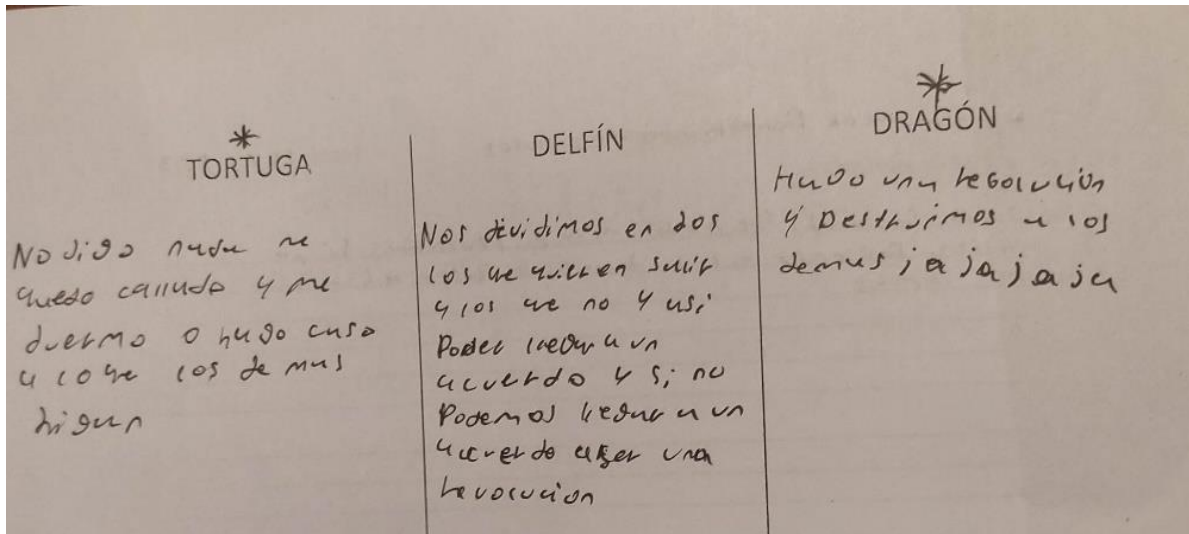 TORTUGA
No digo nada me
quedo callado y me
duermo o hago caso
a lo qe los demas
digan
DELFÍN
Nos dividimos en dos
los qe quieren salir
y los qe no y asi
Poder llegar a un
acuerdo y si no
Podemos llegar a un
acuerdo aser una
revolucion
DRAGÓN
Hago una revolución
y Destruimos a los
demas jajajaja